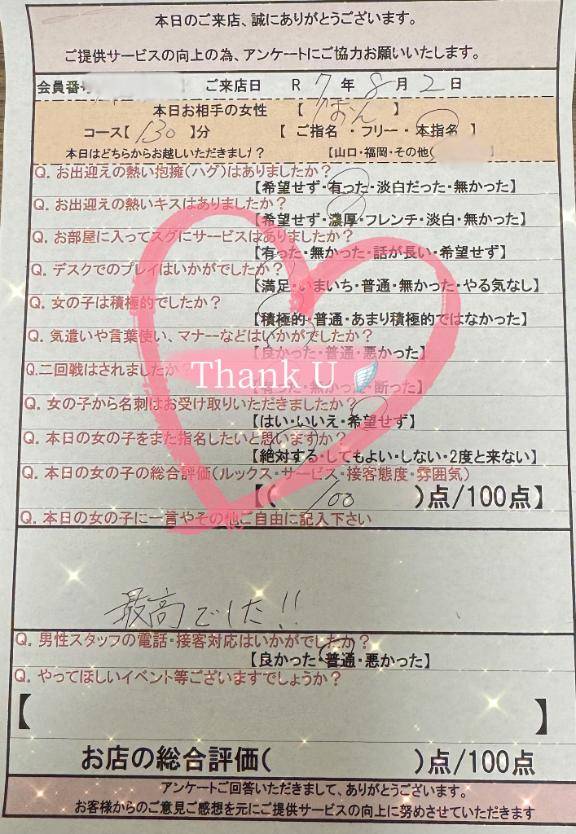 本日のご来店、誠にありがとうございます。
ご提供サービスの向上の為、アンケートにご協力お願いいたします。
会員番 ご来店日 R 7 年 8 月 2 日
本日お相手の女性 【 りおん 】
コース【 130 】分 【 ご指名 ・ フリー ・ 本指名 】
本日はどちらからお越しいただきました? 【山口・福岡・その他(
Q. お出迎えの熱い抱擁(ハグ)はありましたか?
【希望せず・有った・淡白だった・無かった】
Q. お出迎えの熱いキスはありましたか?
【希望せず・濃厚・フレンチ・淡白・無かった】
Q. お部屋に入ってスグにサービスはありましたか?
【有った・無かった・話が長い・希望せず】
Q. デスクでのプレイはいかがでしたか?
【満足・いまいち・普通・無かった・やる気なし】
Q. 女の子は積極的でしたか?
【積極的・普通・あまり積極的ではなかった】
Q. 気遣いや言葉使い、マナーなどはいかがでしたか?
【良かった・普通・悪かった】
Q.二回戦はされましたか
Thank U
【有った・無かった・断った】
Q. 女の子から名刺はお受け取りいただきましたか?
【はい・いいえ・希望せず】
Q. 本日の女の子をまた指名したいと思いますか?
【絶対する・してもよい・しない・2度と来ない】
Q. 本日の女の子の総合評価(ルックス・サービス・接客態度・雰囲気)
【( 100 )点/100点】
Q. 本日の女の子に一言やその他ご自由に記入下さい
最高でした!!
Q. 男性スタッフの電話・接客対応はいかがでしたか?
【良かった・普通・悪かった】
Q. やってほしいイベント等ございますでしょうか?
【 】
お店の総合評価( )点/100点
アンケートご回答いただきまして、ありがとうございます。
お客様からのご意見ご感想を元にご提供サービスの向上に努めさせていただきます